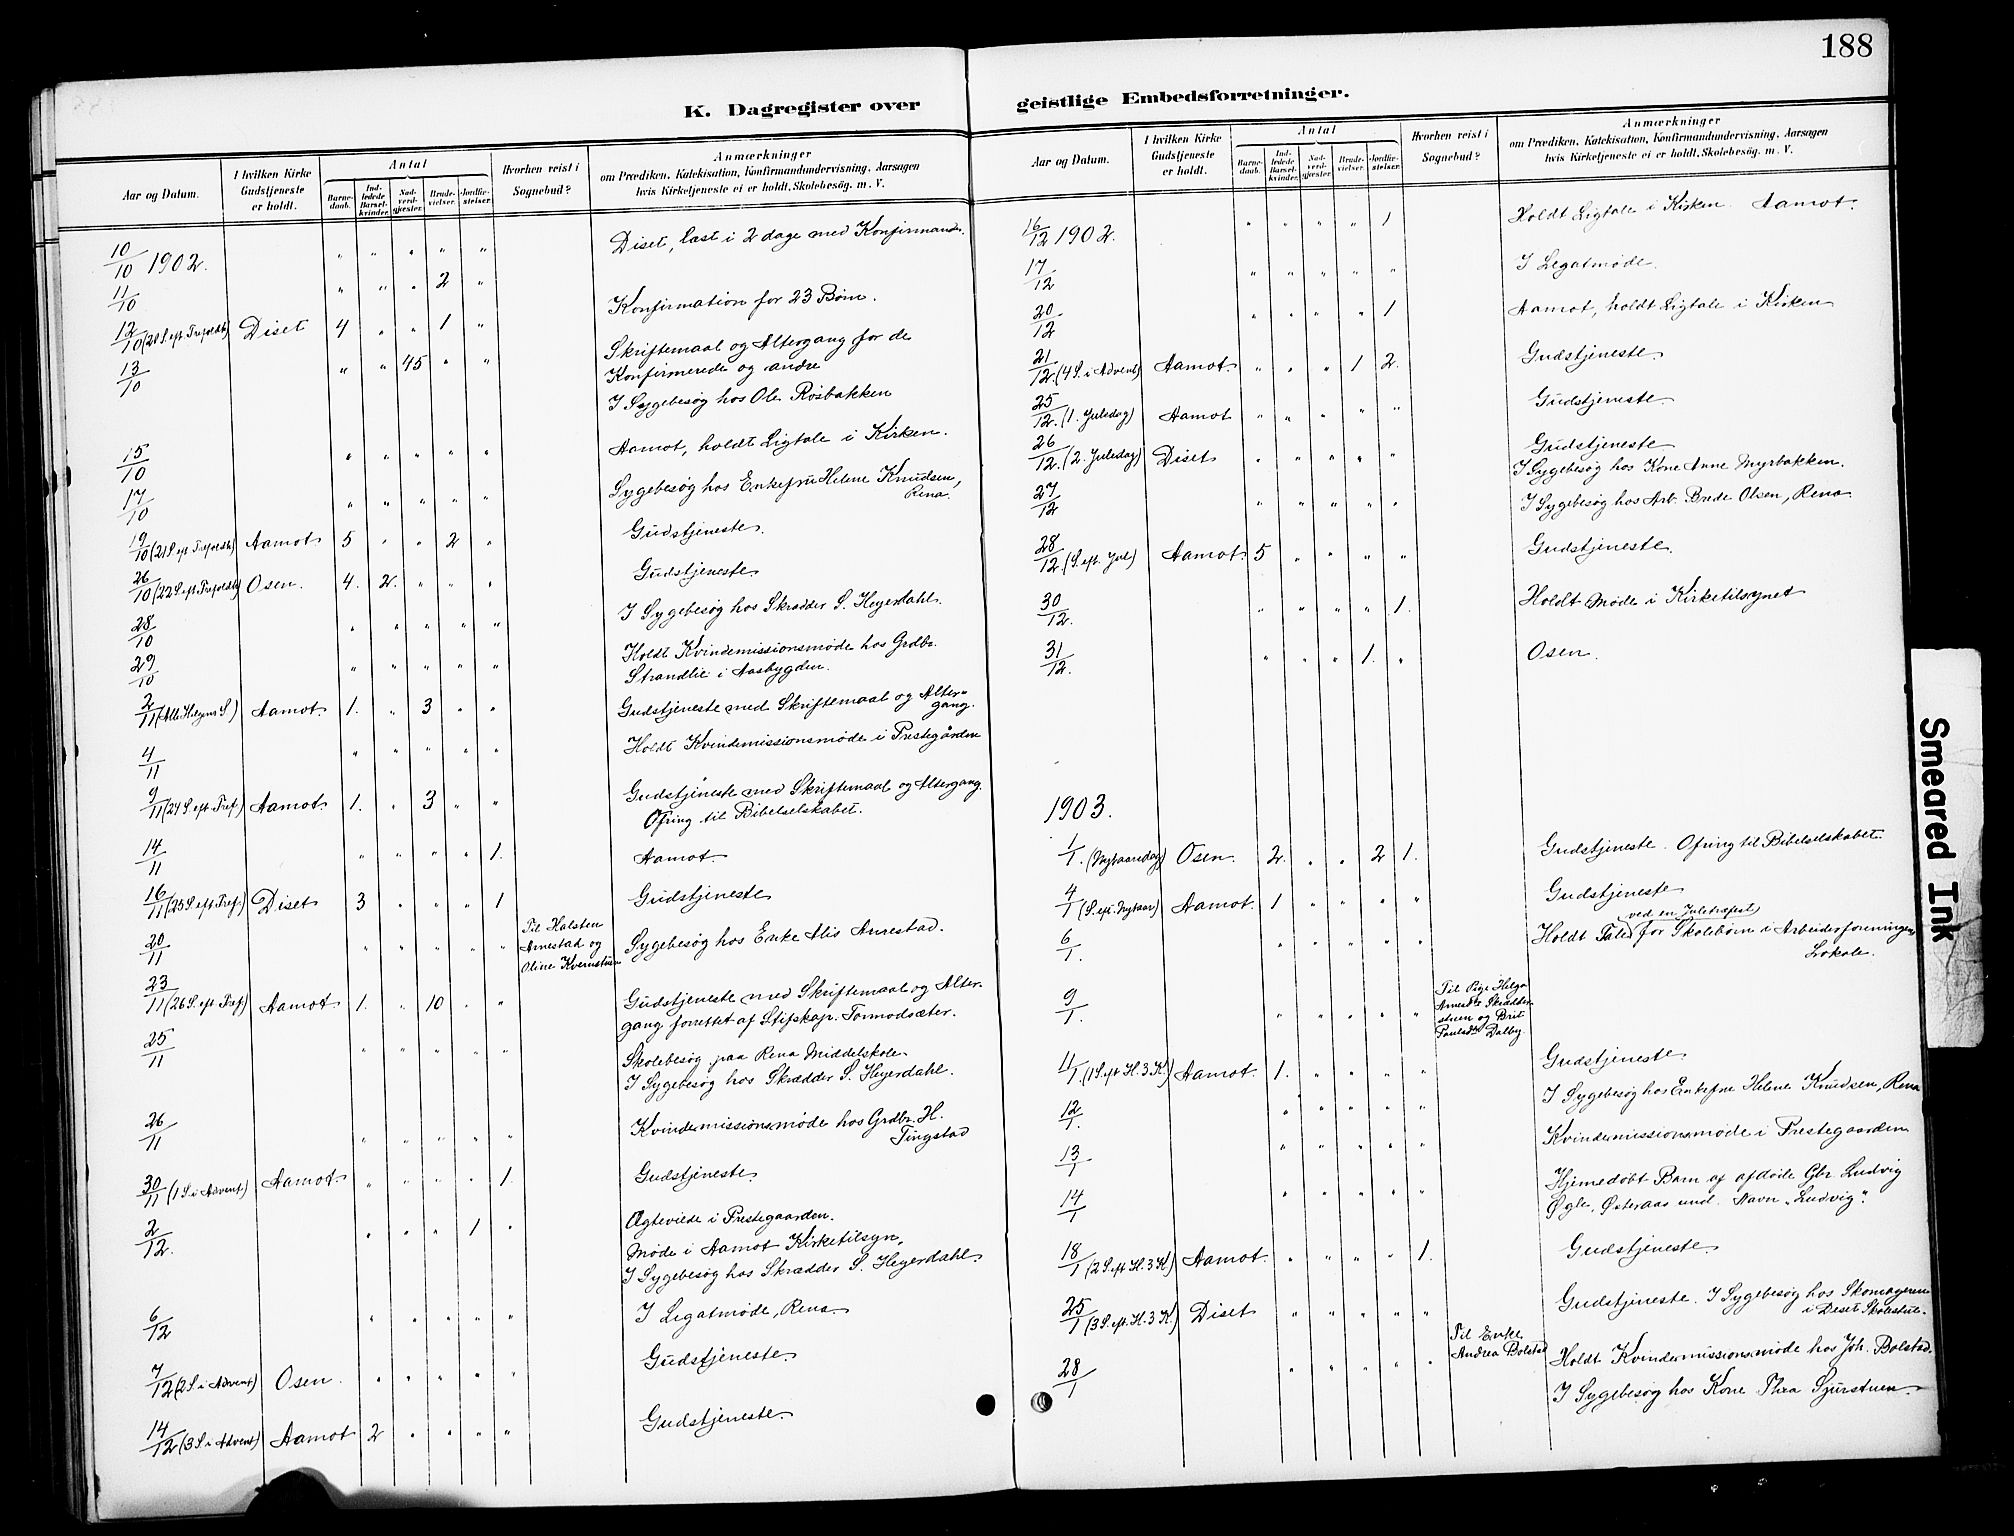 188
K. Dagregister over
Aar og Datum.
I hvilken Kirke Gudstjeneste er holdt.
Antal
Barnedaab.
Indledede Barselkvinder.
Nadverdgjester.
Brudevielser.
Jordfæstelser.
Hvorhen reist i Sognebud?
Anmærkninger
om Prædiken, Katekisation, Konfirmandundervisning, Aarsagen
hvis Kirketjeneste ei er holdt, Skolebesøg. m. V.
10/10 1902. " " " " " Diset, læst i 2 dage med Konfirmander.
11/10 " " " 2 "
12/10 (20 S. eft. Trefoldh) Diset 4 " " 1 " Konfirmation for 23 Børn.
13/10 " " 45 " " Skriftemaal og Altergang for de
Konfirmerede og andre
I Sygebesøg hos Ole Røsbakken
15/10 " " " " " Aamot, holdt Ligtale i Kirken.
17/10 " " " " " Sygebesøg hos Enkefru Helene Knudsen,
Rena.
19/10 (21 S. eft Trefoldh) Aamot 5 " " 2 " Gudstjeneste.
26/10 (22 S. eft Trefoldh) Osen. 4. 2. " " " Gudstjeneste.
28/10 " " " " " I Sygebesøg hos Skrædder S. Heyerdahl.
29/10 " " " " " Holdt Kvindemissionsmøde hos Grdbr.
Strandlie i Aasbygden.
2/11 (Alle Helgens S) Aamot. 1. " 3 " " Gudstjeneste med Skriftemaal og Alter-
gang.
4/11 " " " " " Holdt Kvindemissionsmøde i Prestegården
9/11 (24 S. eft Tref.) Aamot. 1. " 3 " " Gudstjeneste med Skriftemaal og Altergang.
Ofring til Bibelselskabet.
14/11 " " " " 1. Aamot.
16/11 (25 S. eft. Tref.) Diset 3 " " " 1 Gudstjeneste
20/11 " " " " " Til Halsten
Arnestad og
Oline Kvernstuen
Sygebesøg hos Enke Alis Aurestad.
23/11 (26 S. eft Tref) Aamot 1. " 10 " " Gudstjeneste med Skriftemaal og Alter-
gang forrettet af Stifskap. Tormodsæter.
25/11 " " " " " Skolebesøg paa Rena Middelskole.
I Sygebesøg hos Skrædder S. Heyerdahl.
26/11 " " " " " Kvindemissionsmøde hos Grdbr. H.
Tingstad
30/11 (1 S. i Advent) Aamot. " " " " 1. Gudstjeneste.
2/12. " " " 1 " Ægteviede i Prestegaarden.
Møde i Aamot Kirketilsyn,
I Sygebesøg hos Skrædder S. Heyerdahl.
6/12 " " " " " I Legatmøde, Rena.
7/12 (2 S. i Advent) Osen. " " " " " Gudstjeneste.
14/12 (3 S. i Advent) Aamot 2 " " " " Gudstjeneste.
geistlige Embedsforretninger.
Aar og Datum.
I hvilken Kirke Gudstjeneste er holdt.
Antal
Barnedaab.
Indledede Barselkvinder.
Nadverdgjester.
Brudevielser.
Jordfæstelser.
Hvorhen reist i Sognebud?
Anmærkninger
om Prædiken, Katekisation, Konfirmandundervisning, Aarsagen
hvis Kirketjeneste ei er holdt, Skolebesøg. m. V.
16/12 1902. " " " " 1 Holdt Ligtale i Kirken. Aamot.
17/12 " " " " " I Legatmøde.
20/12 " " " " 1 Aamot, holdt Ligtale i Kirken
21/12. (4 S. i Advent) Aamot. " " " 1 2. Gudstjeneste.
25/12. (1. Juledag) Aamot " " " " " Gudstjeneste.
26/12. (2. Juledag) Diset " " " " " Gudstjeneste
I Sygebesøg hos Kone Anne Myrbakken.
27/12 " " " " " I Sygebesøg hos Arb. Brede Olsen, Rena
28/12. (S. eft. Jul) Aamot. 5 " " " " Gudstjeneste.
30/12. " " " " 1. Holdt Møde i Kirketilsynet
31/12. " " " 1. " Osen.
1903.
1/1. (Nytaarsdag) Osen. 2. " " 2 1. Gudstjeneste. Ofring til Bibelselskabet.
4/1 (S. eft. Nytaar) Aamot. 1 " " " " Gudstjeneste
6/1. " " " " " Holdt Tale ved en Juletræfest for Skolebørn i Arbeiderforeningens
Lokale.
9/1. " " " " " Til Pige Helga
Arnesdtr Skrædder-
stuen og Brit
Paulsdtr Dalby.
11/1. (1 S. eft H. 3 K.) Aamot. 1. " " " " Gudstjeneste.
12/1. " " " " " I Sygebesøg hos Enkefru Helene Knudsen, Rena
13/1 " " " " " Kvindemissionsmøde i Prestegaarden
14/1 " " " " " Hjemedøbt Barn af afdøde Gbr. Ludvig
Øgle, Østeraas und. Navn „Ludvig“.
18/1 (2 S. eft H. 3 K) Aamot. " " " " 1. Gudstjeneste.
25/1 (3 S. eft. H. 3 K.) Diset " " " " " Gudstjeneste. I Sygebesøg hos Skomageren
i Diset Skolestue.
28/1 " " " " " Til Enke
Andrea Bolstad
Holdt Kvindemissionsmøde hos Joh. Bolstad.
I Sygebesøg hos Kone Thea Sjurstuen.
Smeared Ink